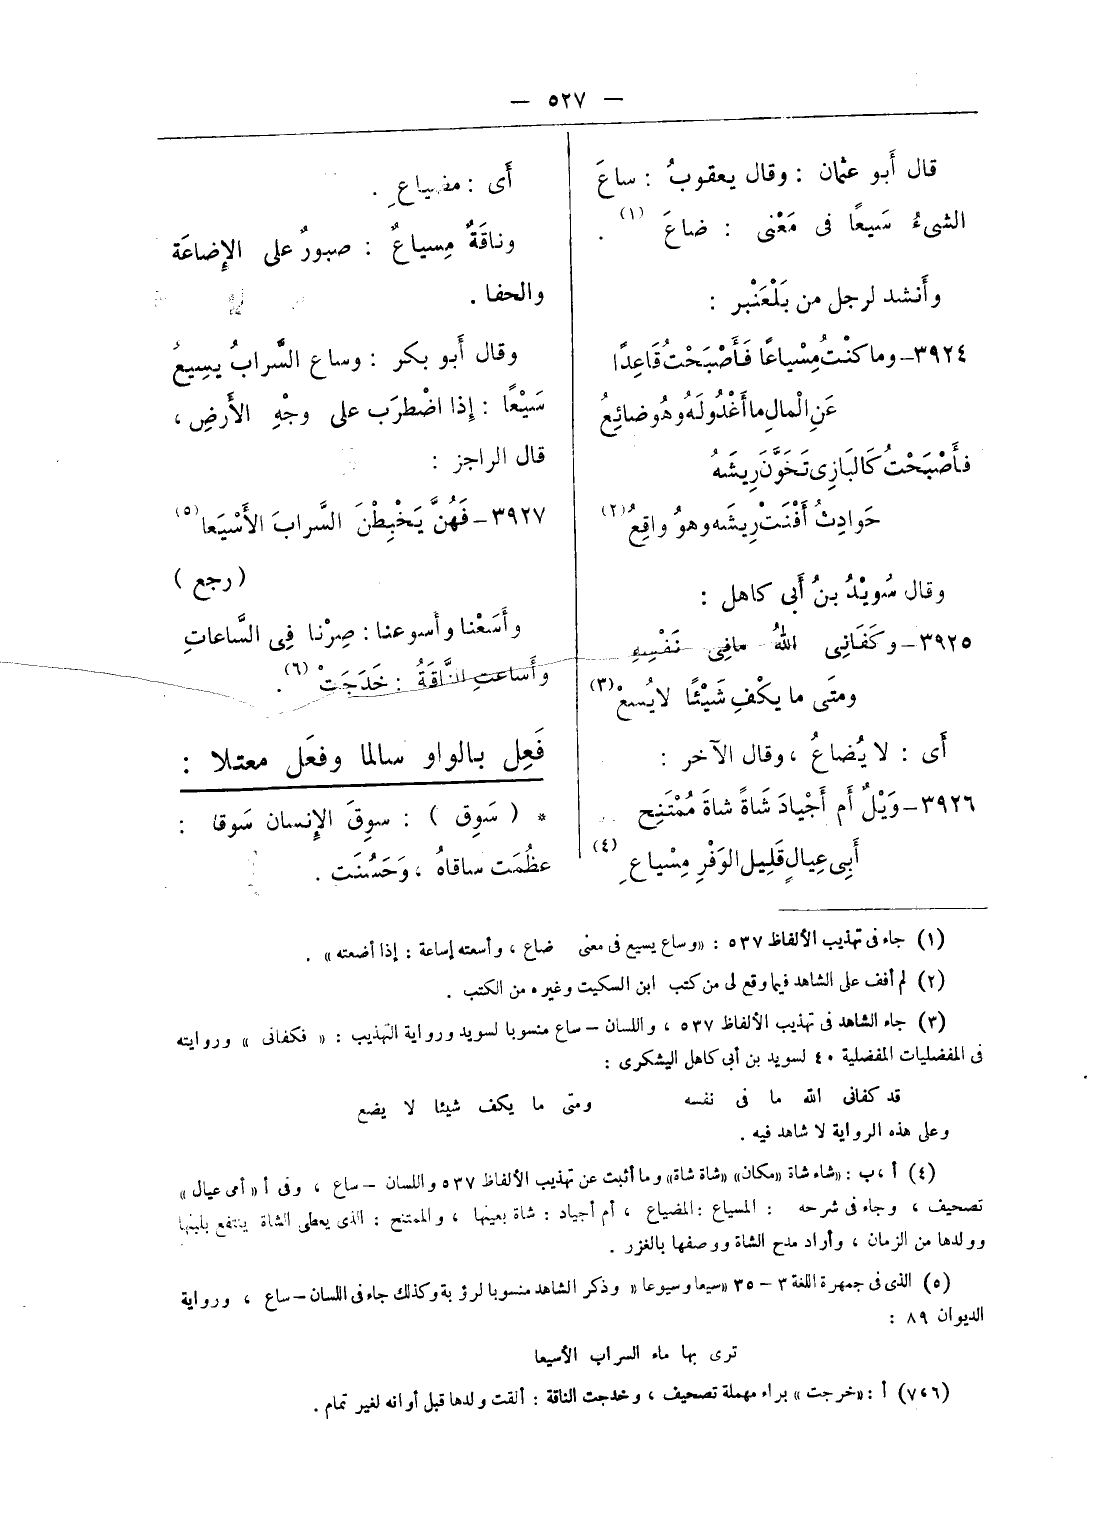 — ٥٢٧ —
قال أبو عثمان : وقال يعقوبُ : ساعَ
الشىءُ سَيعًا فى مَعْنى : ضاعَ (١) .
وأَنشد لرجل من بَلْعَنْبر :
٣٩٢٤ – وما كنْتُ مِسْياعًا فَأَصْبَحْتُ قَاعِدًا
عَنِ الْمالِ ما أَغْدُو لَهُ وهُو ضائِعُ
فأَصْبَحْتُ كَالبَازِى تَخَوَّنَ رِيشَهُ
حَوادِثُ أَفْنَتْ رِيشَه وهوُ واقِعُ (٢)
وقال سُويْدُ بنُ أَبى كاهل :
٣٩٢٥ – وكَفَانِى اللهُ مافِى نَفْسِهِ
ومتَى ما يكْفِ شَيْئًا لا يُسعْ (٣)
أَى : لا يُضاعُ ، وقال الآخر :
٣٩٢٦ – وَيْلٌ أم أَجْيادَ شَاةً شاةَ مُمْتَنِح
أَبِى عِيالٍ قَلِيل الوَفْرِ مِسْياعِ (٤)
أَى : مضياعِ .
وناقَةٌ مِسياعٌ : صبورٌ على الإِضاعَة
والحفا .
وقال أَبو بكر : وساع السَّرابُ يسِيعُ
سَيْعًا : إذا اضْطرَب على وجْهِ الأَرضِ ،
قال الراجز :
٣٩٢٧ – فَهُنَّ يَخْبِطْنَ السَّرابَ الأَسْيَعا (٥)
( رجع )
وأَسَعْنا وأسوعنا : صِرْنا فِى السَّاعاتِ
وأَساعتِ النَّاقَةُ : خَدَجَتْ (٦) .
فَعِل بالواو سالما وفعَل معتلا :
* ( سَوِق ) : سوِقَ الإِنسان سَوقا :
عظُمَت ساقاهُ ، وَحَسُنَت .
(١) جاء فى تهذيب الألفاظ ٥٣٧ : «وساع يسيع فى معنى ضاع ، وأسعته إساعة : إذا أضعته» .
(٢) لم أقف على الشاهد فيما وقع لى من كتب ابن السكيت وغيره من الكتب .
(٣) جاء الشاهد فى تهذيب الألفاظ ٥٣٧ ، واللسان – ساع منسوبا لسويد ورواية التهذيب : « فكفانى » وروايته
فى المفضليات المفضلية ٤٠ لسويد بن أبى كاهل اليشكرى :
قد كفانى الله ما فى نفسه ومتى ما يكف شيئا لا يضع
وعلى هذه الرواية لا شاهد فيه .
(٤) أ ، ب : «شاء شاة «مكان» «شاة شاة» وما أثبت عن تهذيب الألفاظ ٥٣٧ واللسان – ساع ، وفى أ «أمى عيال»
تصحيف ، وجاء فى شرحه : المسياع : المضياع ، أم أجياد : شاة بعينها ، والممتنح : الذى يعطى الشاة ينتفع بلبنها
وولدها من الزمان ، وأراد مدح الشاة ووصفها بالغزر .
(٥) الذى فى جمهرة اللغة ٣ – ٣٥ «سيعا وسيوعا» وذكر الشاهد منسوبا لرؤبة وكذلك جاء فى اللسان – ساع ، ورواية
الديوان ٨٩ :
ترى بها ماء السراب الأسيعا
(٧،٦) أ : «خرجت» براء مهملة تصحيف ، وخدجت الناقة : ألقت ولدها قبل أوانه لغير تمام .